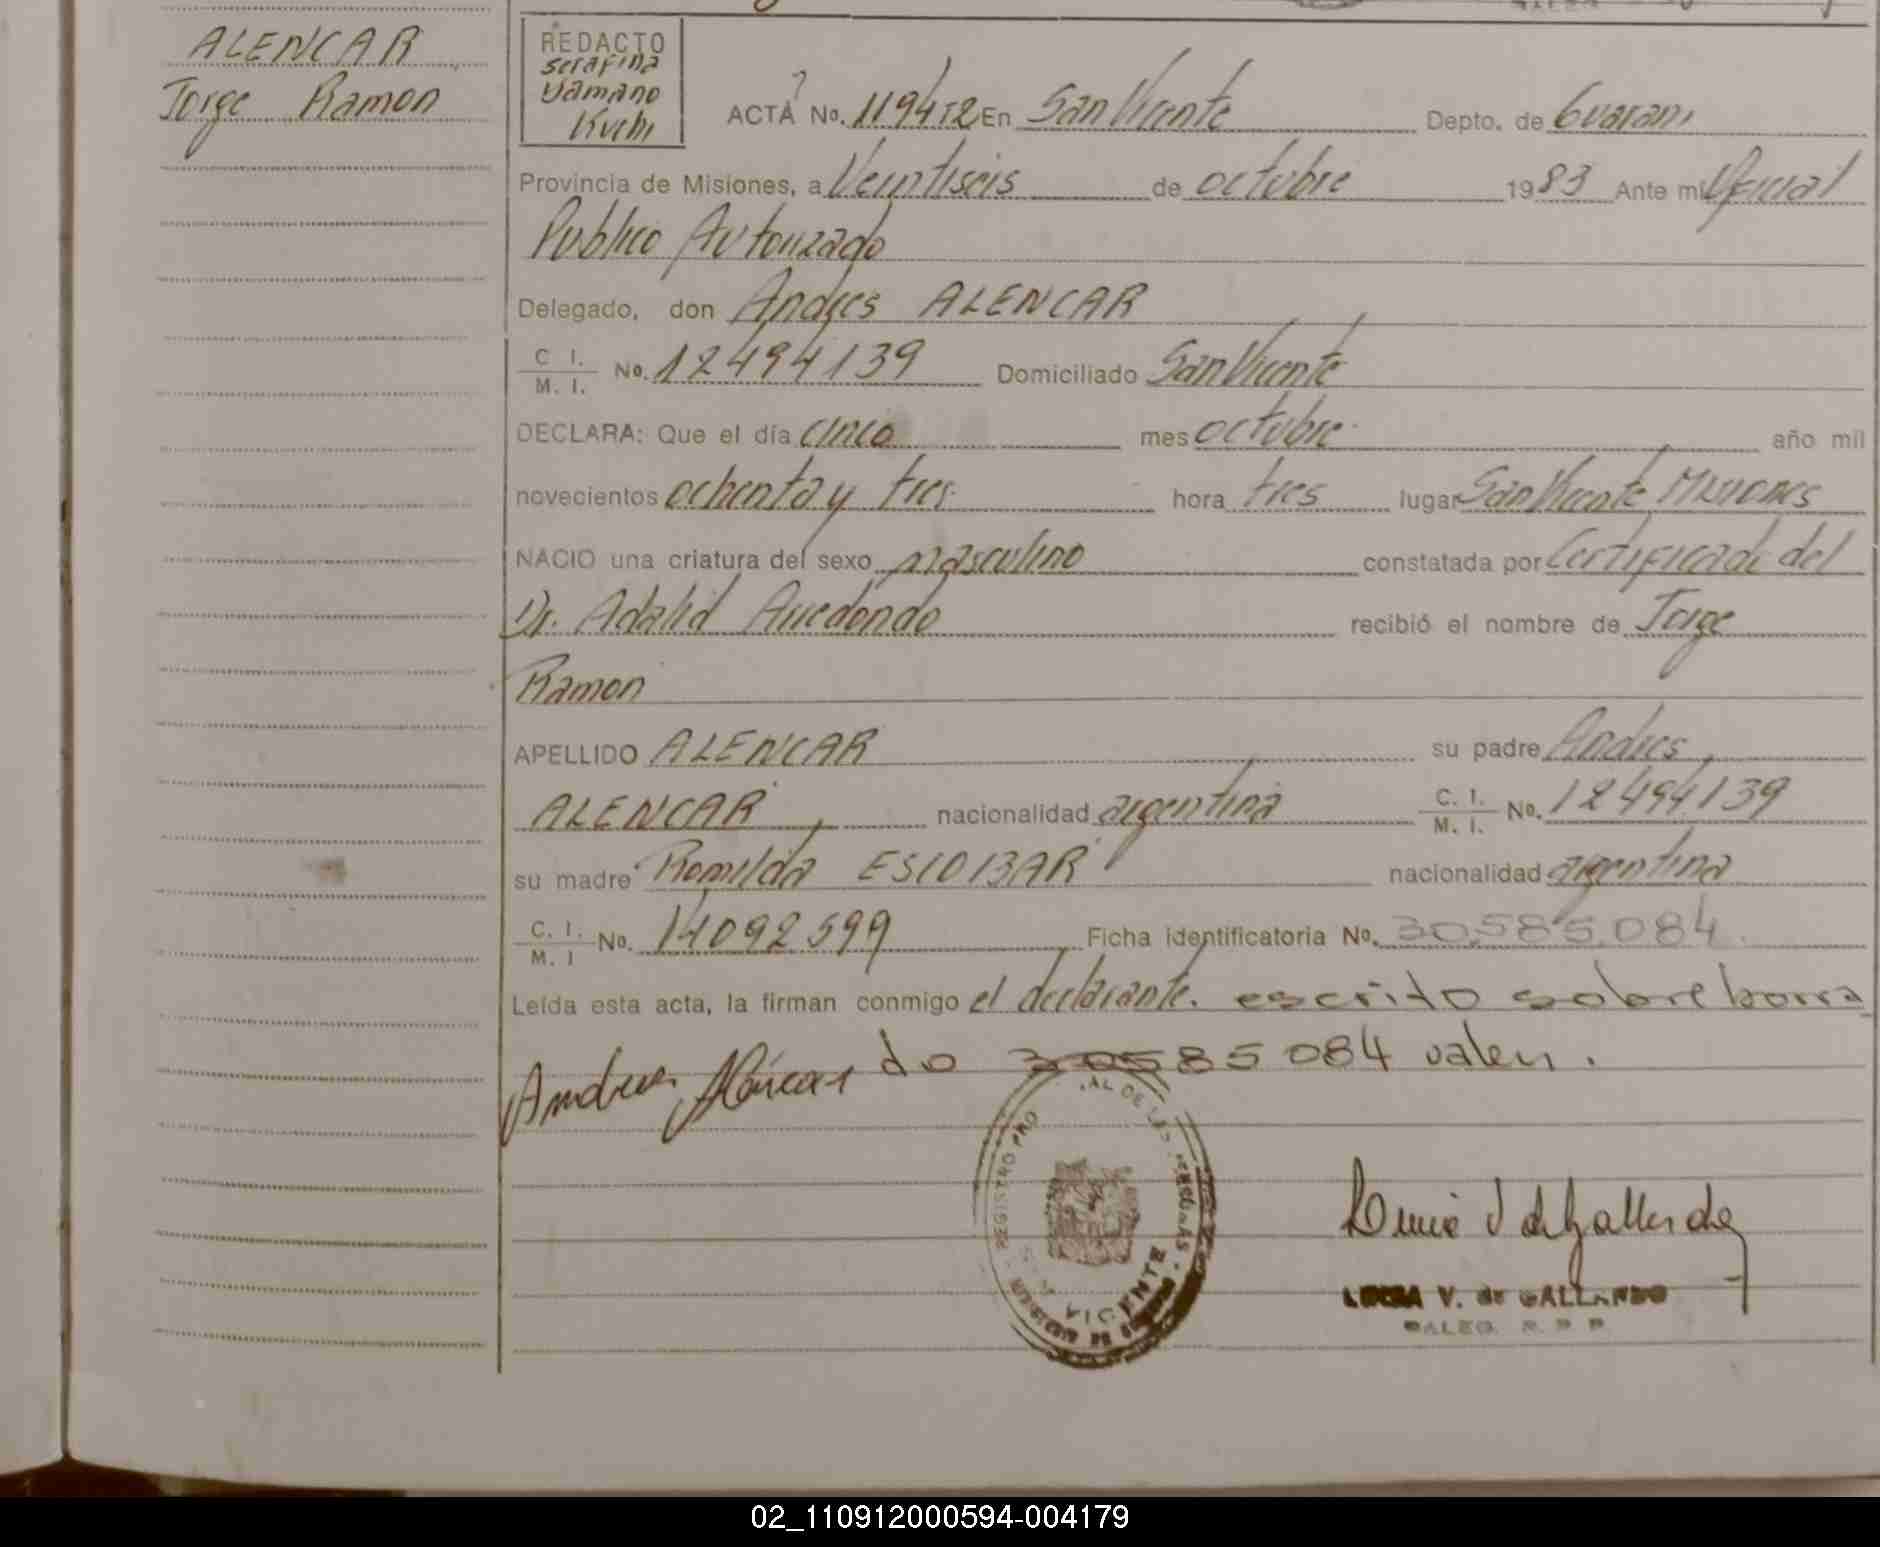 ALENCAR
Jorge Ramon
REDACTO
serafina
Kuchi
ACTA No. En San Vicente Depto. de Guarani
Provincia de Misiones, a Veintiseis de octubre 1983 Ante mi Oficial
Publico Autorizado
Delegado, don Andres ALENCAR
C I. M. I. No. 12494139 Domiciliado San Vicente
DECLARA: Que el día cinco mes octubre año mil
novecientos ochenta y tres hora tres lugar San Vicente Misiones
NACIO una criatura del sexo masculino constatada por Certificado del
Dr. Adalid Arredondo recibió el nombre de Jorge
Ramon
APELLIDO ALENCAR su padre Andres
ALENCAR nacionalidad argentina C. I. M. I. No. 12494139
su madre Romilda ESCOBAR nacionalidad argentina
C. I. M. I No. 14092599 Ficha identificatoria No. 30.585.084.
Leída esta acta, la firman conmigo el declarante. escrito sobre borra
do 30585084 valen.
Andres Alencar
REGISTRO PRO AL DE LAS PERSONAS
VICENTE
V. de GALLARDO
DALEG. R. P. P.
02_110912000594-004179